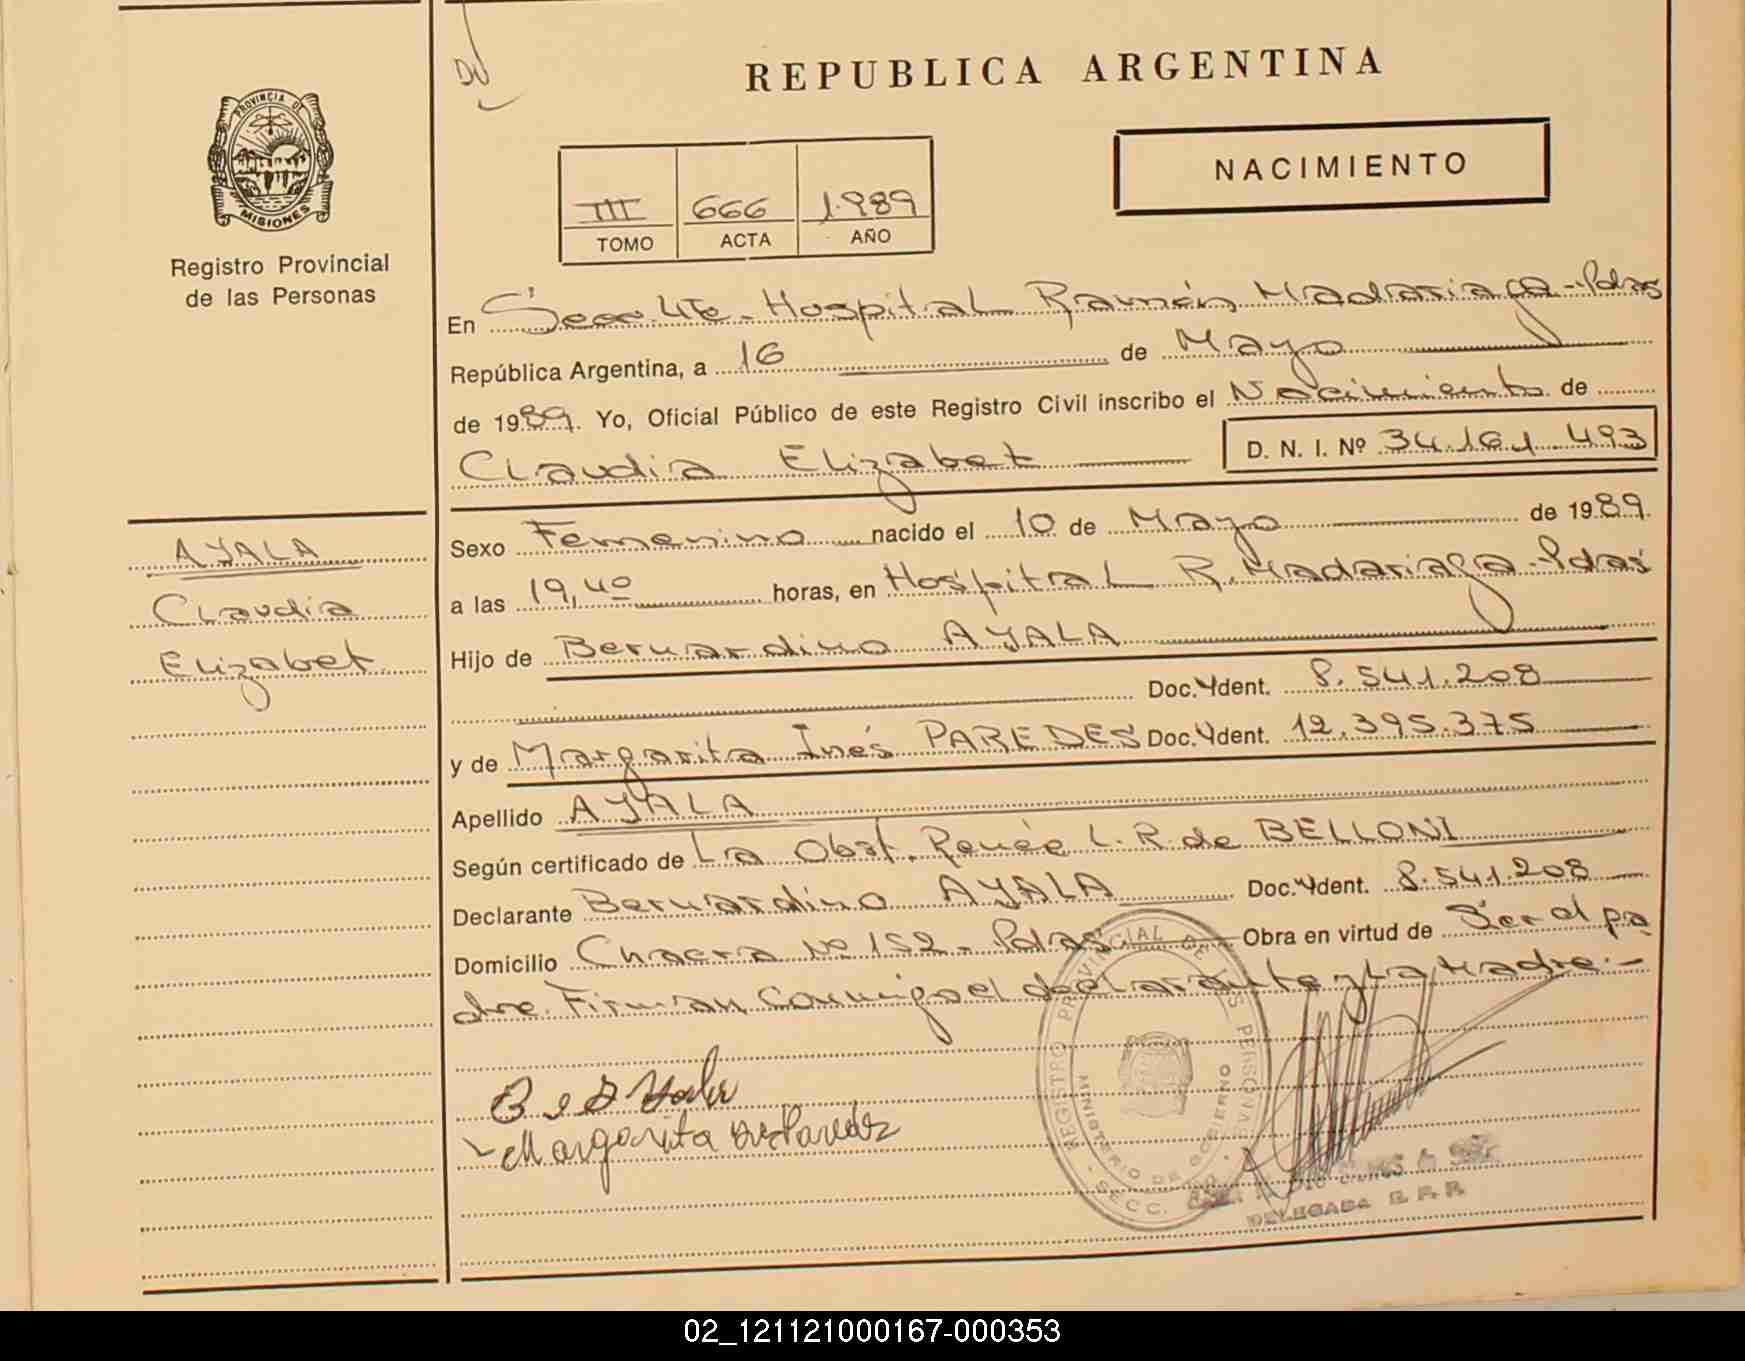 DU
REPUBLICA ARGENTINA
PROVINCIA DE
MISIONES
Registro Provincial
de las Personas
NACIMIENTO
III 666 1.989
TOMO ACTA AÑO
En Secc. 4ta. Hospital Ramón Madariaga - Pdas
República Argentina, a 16 de Mayo
de 1989. Yo, Oficial Público de este Registro Civil inscribo el Nacimiento de
Claudia Elizabet D. N. I. Nº 34.161.493
AYALA
Claudia
Elizabet
Sexo Femenino nacido el 10 de Mayo de 1989.
a las 19,40 horas, en Hospital R. Madariaga - Pdas
Hijo de Bernardino AYALA
Doc. Ydent. 8.541.208
y de Margarita Inés PAREDES Doc. Ydent. 12.395.375
Apellido AYALA
Según certificado de La Obst. Renée L. R. de BELLONI
Declarante Bernardino AYALA Doc. Ydent. 8.541.208
Domicilio Chacra Nº 152 - Pdas Obra en virtud de Ser el pa
dre. Firman Conmigo el declarante y La Madre.-
Margarita Paredez
REGISTRO PROVINCIAL DE LAS PERSONAS
MINISTERIO DE GOBIERNO
SECC.
DELEGADA R. P. P.
02_121121000167-000353